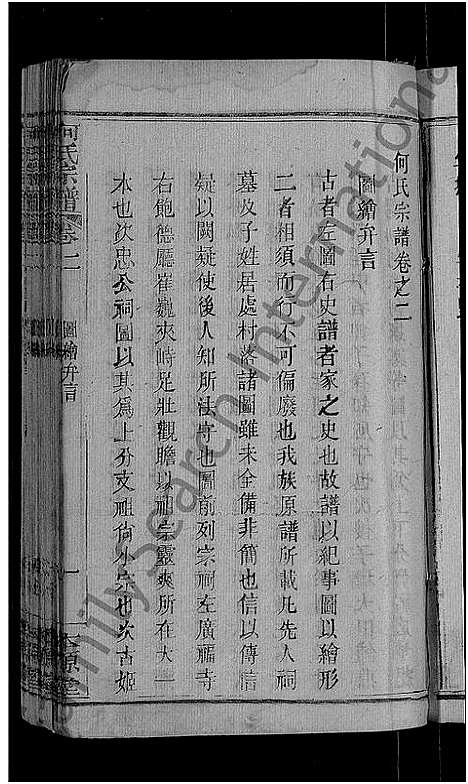 何氏宗譜卷之二
圖繪弁言
古者左圖右史譜者家之史也故譜以紀事圖以繪形
二者相須而行不可偏廢也我族原譜所載凡先人祠
墓及子姓居處村落諸圖雖未全備非簡也信以傳信
疑以闕疑使後人知所法守也圖前列宗祠左廣福寺
右飽德廳崔巍夾峙足壯觀瞻以祖宗靈爽所在大一
本也次忠公祠圖以其爲上分支祖倘小宗也次古姬
何氏宗譜
卷二
圖繪弁言
一
本原堂
FamilySearch International